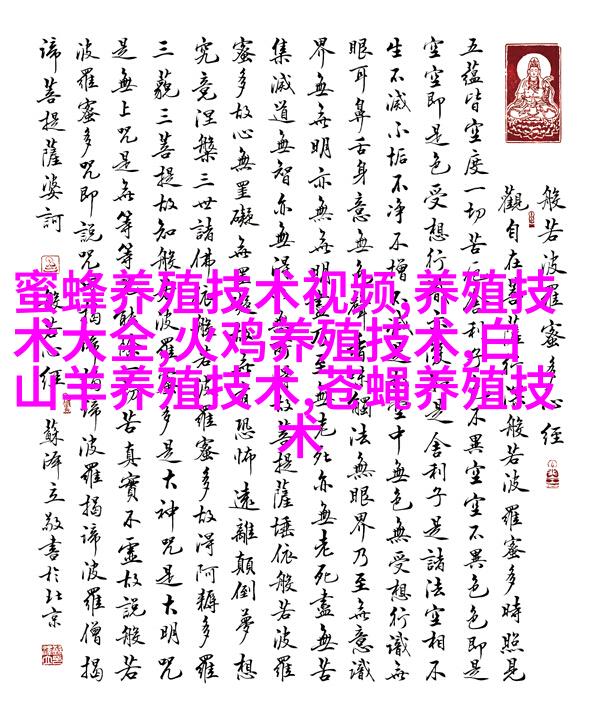 般若波羅蜜多心經
觀自在菩薩行深般若波羅蜜多時照見
五蘊皆空度一切苦厄舍利子色不異空空不異色色即是
空空即是色受想行識亦復如是舍利子是諸法空相不
生不滅不垢不淨不增不減是故空中無色無受想行識無
眼耳鼻舌身意無色聲香味觸法無眼界乃至無意識
界無無明亦無無明盡乃至無老死亦無老死盡無苦
集滅道無智亦無得以無所得故菩提薩埵依般若波羅
蜜多故心無罣礙無罣礙故無有恐怖遠離顛倒夢想
究竟涅槃三世諸佛依般若波羅蜜多故得阿耨多羅
三藐三菩提故知般若波羅蜜多是大神咒是大明咒
是無上咒是無等等咒能除一切苦真實不虛故說般若
波羅蜜多咒即說咒曰揭諦揭諦波羅揭諦波羅僧揭
諦菩提薩婆訶
般若心經 蘇澤立敬書於北京
蜜蜂养殖技术视频,养殖技
术大全,火鸡养殖技术,白
山羊养殖技术,苍蝇养殖技
术